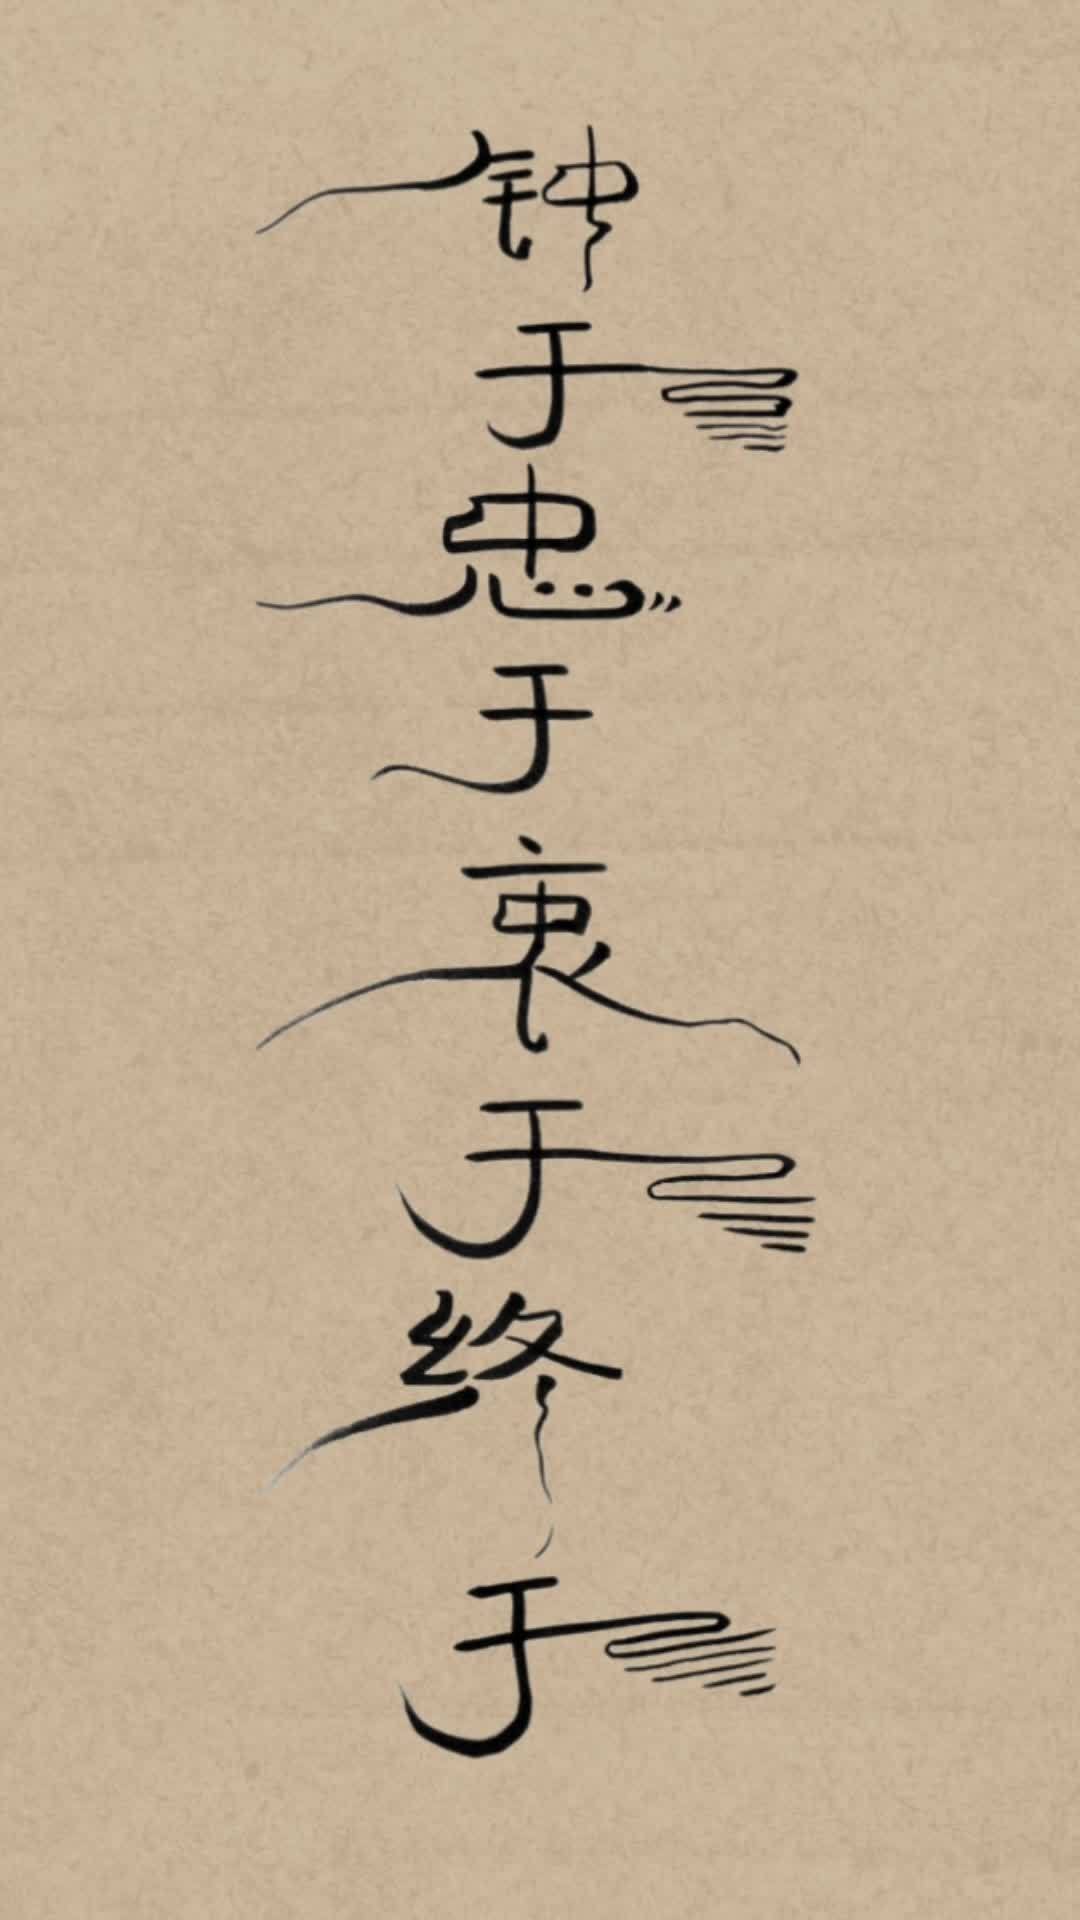 钟于忠于衷于终于